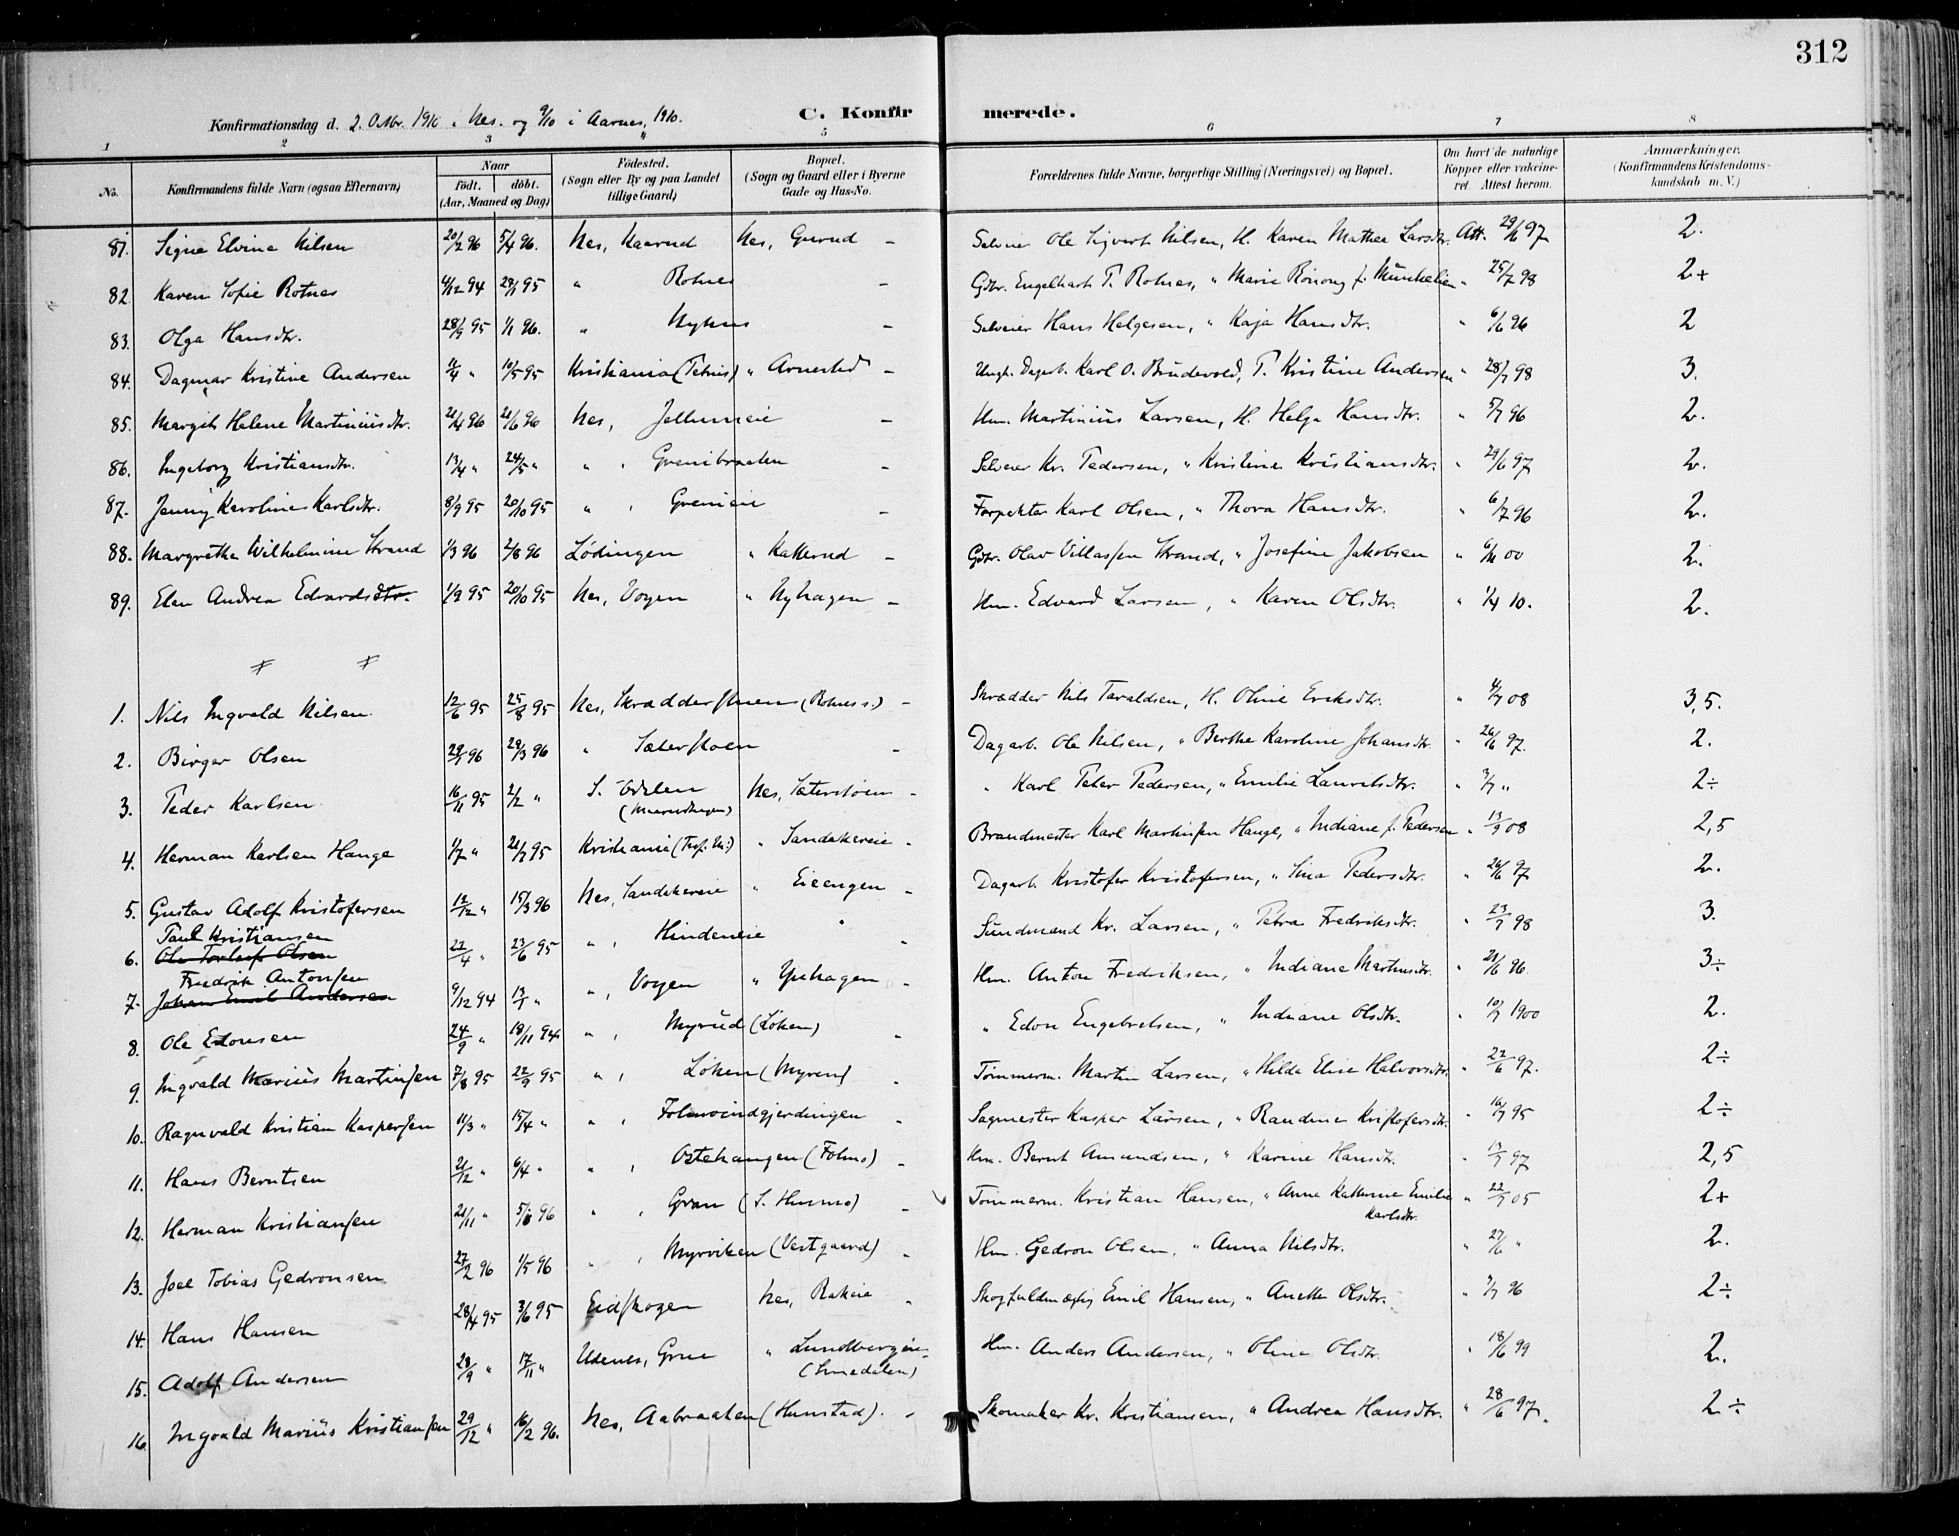 312
Konfirmationsdag d. 2. Oktbr. 1910 i Nes. og 9/10 i Aarnes, 1910.
C. Konfirmerede.
1 2 3 4 5 6 7 8
No. Konfirmandens fulde Navn (ogsaa Efternavn) Naar født. døbt. (Aar, Maaned og Dag) Fødested. (Sogn eller By og paa Landet tillige Gaard) Bopæl. (Sogn og Gaard eller i Byerne Gade og Hus-No. Forældrenes fulde Navne, borgerlige Stilling (Næringsvei) og Bopæl. Om havt de naturlige Kopper eller vakcineret. Attest herom. Anmærkninger. (Konfirmandens Kristendomskundskab m. V.)
81. Signe Elvine Nilsen 20/2 96 5/4 96. Nes, Kaarud Nes, Gurud - Selveier Ole Sigvart Nilsen, H. Karen Mathea Larsdtr. Att. 97 2.
82. Karen Sofie Rotnes 4/12 94 95 " Rotnes - Gdbr. Engelhart T. Rotnes, " Marie f. " 25/7 98 2+
83. Olga Hansdtr. 28/9 95 1/1 96. " Nyhus - Selveier Hans Helgesen, " Kaja Hansdtr. " 6/6 96 2
84. Dagmar Kristine Andersen " 10/5 95 Kristiania " Arnestad - Ungk. Dagarb. Karl O. Brudevold, T. Kristine Andersen " 28/7 98 3.
85. Margit Helene Martiniusdtr. 21/4 96 21/6 96 Nes, Jellumeie - Hm. Martinius Larsen, H. Helga Hansdtr. " 5/7 96 2.
86. Ingeborg Kristiansdtr. 13/4 " 24/5 " " , Grenibraaten Selveier Kr. Pedersen, " Kristine Kristiansdtr. " 29/6 97 2.
87. Jenny Karoline Karlsdtr. 8/9 95 20/10 95 " , Grenieie - Forpakter Karl Olsen, " Thora Hansdtr. " 6/7 96 2.
88. Margrethe Wilhelmine Strand 1/3 96 2/8 96 Lødingen " Katterud - Gdbr. Olav Villassen Strand, " Josefine Jakobsen " 00 2.
89. Elen Andrea Edvardsdtr. 1/9 95 20/10 95 Nes, Voyen " Nyhagen - Hm. Edvard Larsen, " Karen Olsdtr. " 1/4 10. 2.
1. Nils Ingvald Nilsen 12/6 95 25/8 95 Nes, Skrædderstuen (Rotnes s.) - Skrædder Nils Taraldsen, H. Oline Eriksdtr. " 4/7 08 3,5.
2. Birger Olsen 29/1 96 29/3 96 " Sæterstoen - Dagarb. Ole Nilsen, " Berthe Karoline Johansdtr. " 26/6 97. 2.
3. Peder Karlsen 16/11 95 2/2 " S. Odalen Nes, Sæterstoen - " Karl Peter Pedersen, " Emilie Lauritsdtr. " 3/7 " 2÷
4. Herman Karlsen Hauge 1/7 " 21/7 95 Kristiania " Sandakereie - Brandmester Karl Martinsen Hauge, " Indiane f. Pedersen " 13/9 08 2,5
5. Gustav Adolf Kristofersen 12/12 " 15/3 96 Nes, Sandakereie " Eieengen - Dagarb. Kristofer Kristofersen, " Lina Pedersdtr. " 26/6 97 2.
Paul Kristiansen
6. Ole Torleif Olsen 22/4 " 23/6 95 " , Hindeneie " - Sundmand Kr. Larsen, " Petra Fredriksdtr. " 23/7 98 3.
Fredrik Antonsen
7. Johan Emil Andersen 9/12 94 13/1 " " , Voyen " Yphagen - Hm. Anton Fredriksen, " Indiane Martinsdtr. " 21/6 96. 3÷
8. Ole Edonsen 24/9 " 18/11 94 " , Myrud (Løken) - " Edon Engebretsen, " Indiane Olsdtr. " 10/7 1900 2.
9. Ingvald Marius Martinsen 7/8 95 22/9 95 " , Løken (Myren) - Tømmerm. Martin Larsen, " Hilda Elise Halvorsdtr. " 22/6 97. 2÷
10. Ragnvald Kristian Kaspersen 11/3 " 15/4 " " , Folmoindgjerdingen - Sagmester Kasper Larsen, " Randine Kristofersdtr. " 16/7 95 2÷
11. Hans Berntsen 21/12 " 6/4 " " , Ostehaugen (Folmo) - Hm. Bernt Amundsen, " Karine Hansdtr. " 13/7 97 2,5
12. Herman Kristiansen 21/11 " 96 " , Gran (S. Hunmo) - Tømmerm. Kristian Hansen, " Anne Katterine Emilie Karlsdtr. " 22/7 05 2+
13. Joel Tobias Gedronsen 27/2 96 1/5 96 " , Myrviken (Vestgaard) - Hm. Gedron Olsen, " Anna Nilsdtr. " 27/6 " 2.
14. Hans Hansen 28/4 95 3/6 95 Eidskogen Nes, Rakeie " Skogfuldmægtig Emil Hansen, " Anette Olsdtr. " 3/7 96 2÷
15. Adolf Andersen 28/9 " 17/11 " Udenes, Grue " Lundbergeie (Smedalen) Hm. Anders Andersen, " Oline Olsdtr. " 18/6 99 2.
16. Ingvald Marius Kristiansen 29/12 " 16/2 96. Nes, Aabraaten (Hunstad). - Skomaker Kr. Kristiansen, " Andrea Hansdtr. " 28/6 97. 2÷